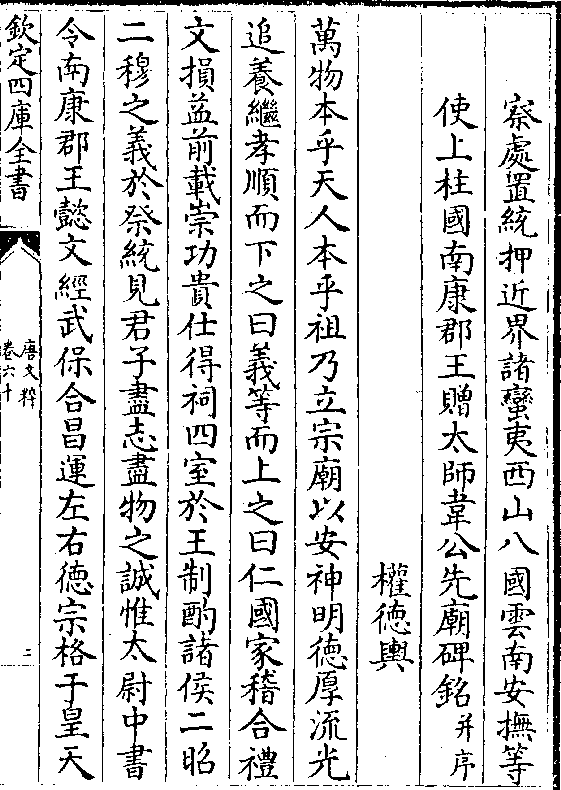 察處置統押近界諸蠻夷西山八國雲南安撫等
使上柱國南康郡王贈太師韋公先廟碑銘并序
權德輿
萬物本乎天人本乎祖乃立宗廟以安神明德厚流光
追養繼孝順而下之曰義等而上之曰仁國家稽合禮
文損益前載崇功貴仕得祠四室於王制酌諸侯二昭
二穆之義於祭統見君子盡志盡物之誠惟太尉中書
令南康郡王懿文經武保合昌運左右德宗格于皇天
欽定四庫全書
唐文粹
卷六十
二